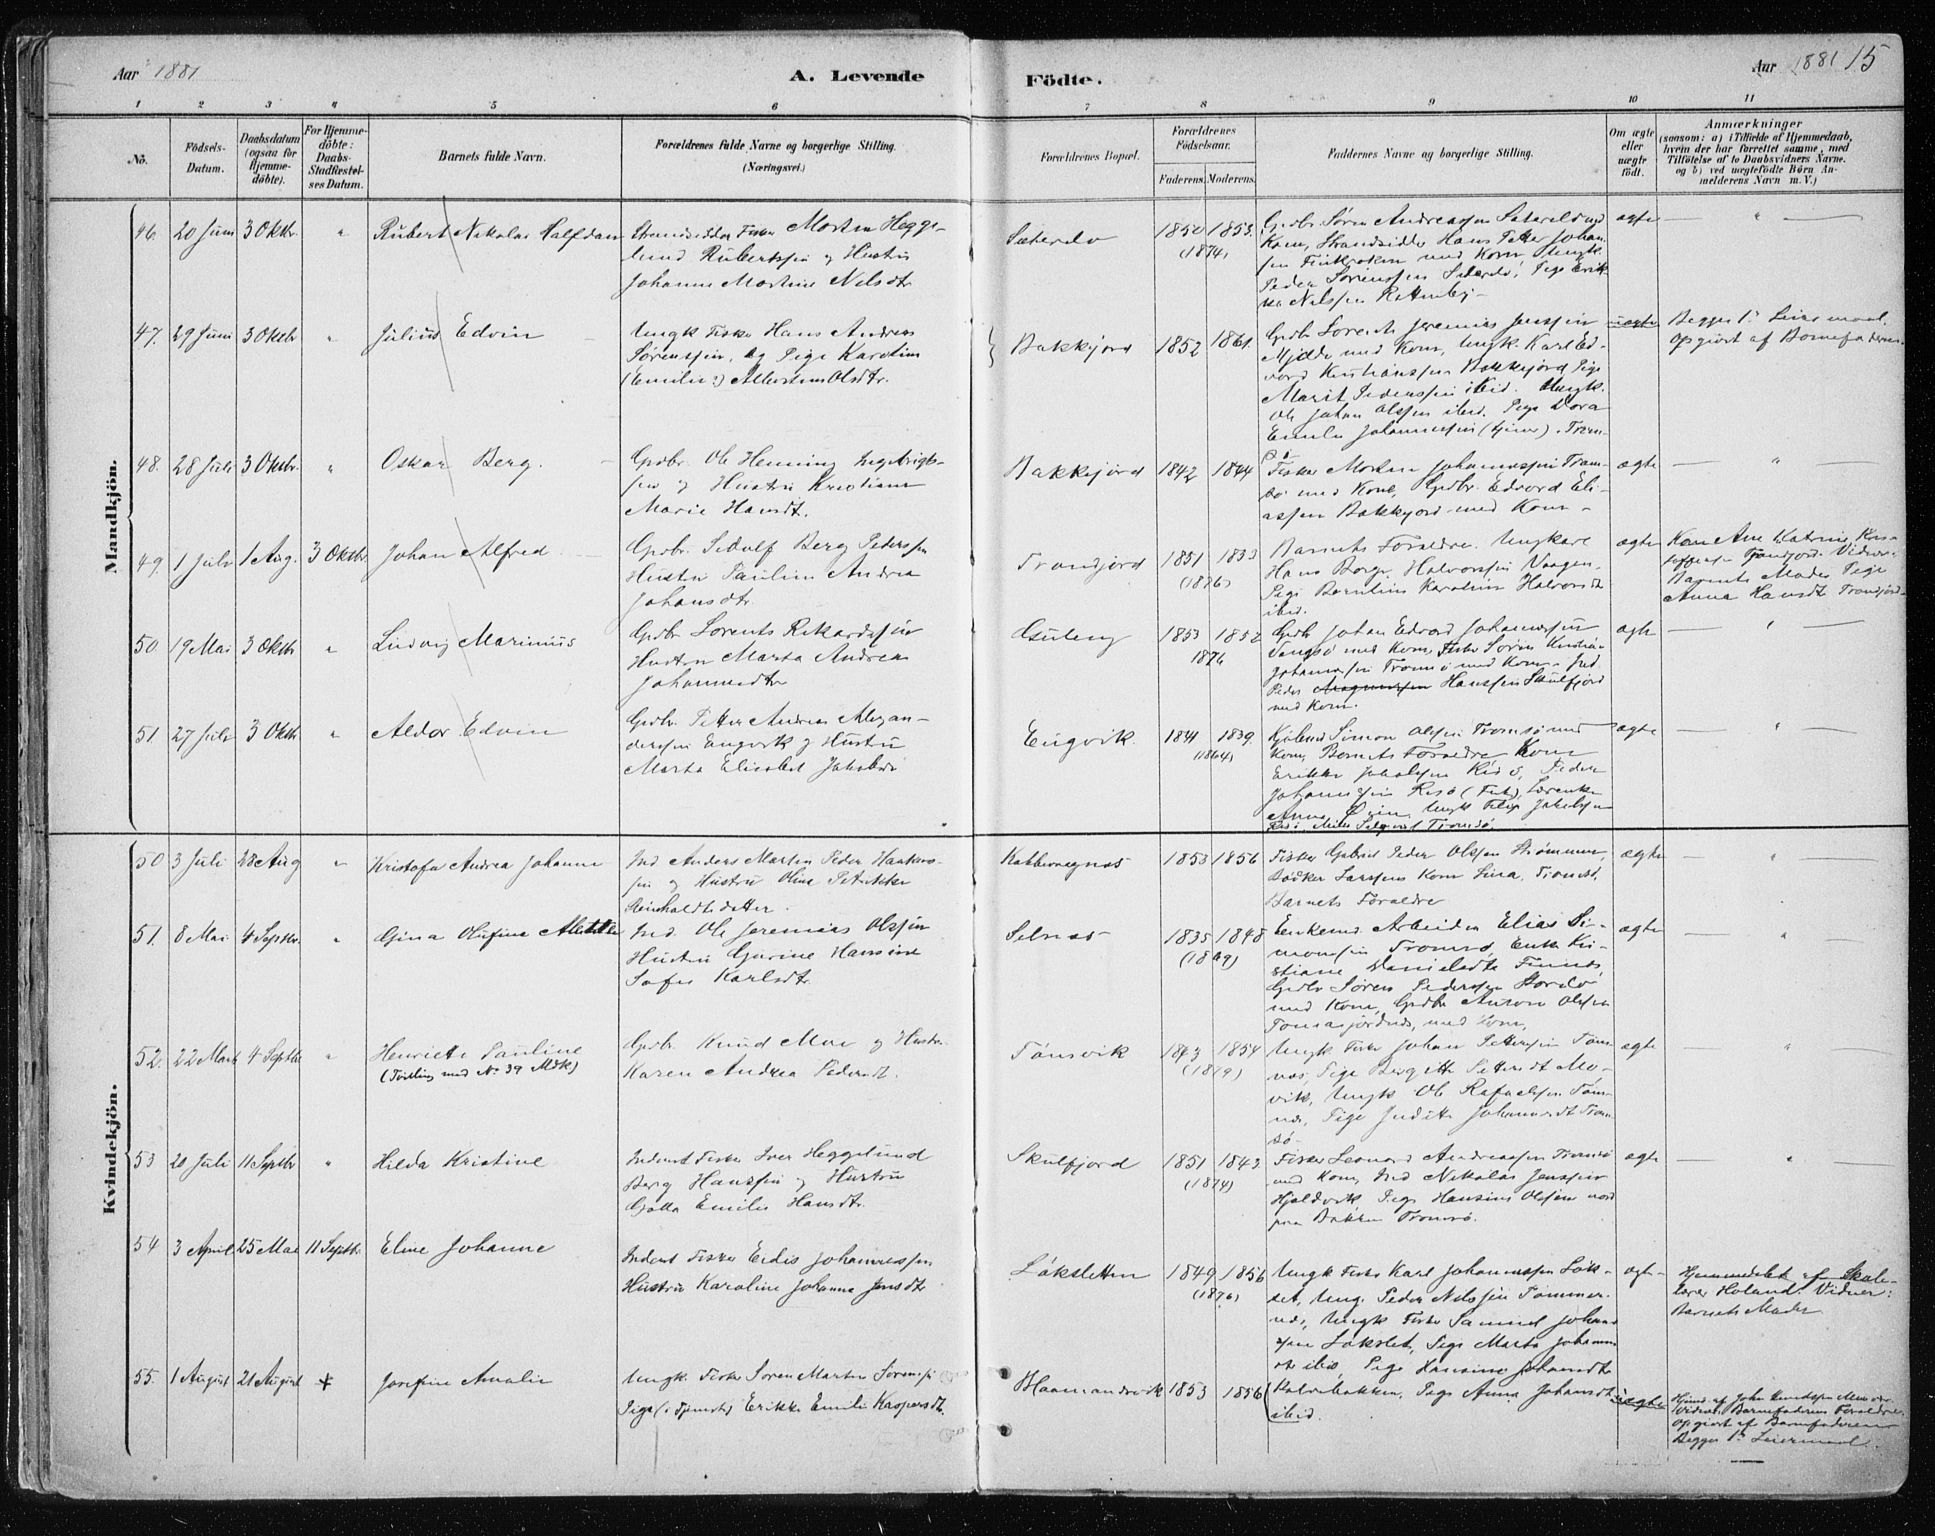 Aar 1881
A. Levende
Födte.
Aar 1881 15
1 2 3 4 5 6 7 8 9 10 11
No.
Födsels-
Datum.
Daabsdatum
(ogsaa for
Hjemme-
döbte).
For Hjemme-
döbte:
Daabs-
Stadfæstel-
ses Datum.
Barnets fulde Navn.
Forældrenes fulde Navne og borgerlige Stilling.
(Næringsvei.)
Forældrenes Bopæl.
Forældrenes
Födselsaar.
Faderens. Moderens.
Faddernes Navne og borgerlige Stilling.
Om ægte
eller
uægte
födt.
Anmærkninger
(saasom: a) i Tilfælde af Hjemmedaab,
hvem der har forrettet samme, med
Tilföielse af to Daabsvidners Navne.
og b) ved uægtefödte Börn An-
melderens Navn m. V.)
Mandkjön.
46 20 Juni 3 Oktbr. " Rubert Nikolai Halfdan
Strandsidder Fisker Morten Hegge-
lund Rubertssen og Hustru
Johanne Martine Nilsdtr.
1850 1853
(1874)
Gdbr. Søren Andreassen
Kone, Strandsidder Hans Petter Johan-
sen Finkroken med Kone Ungk.
Peder Sørenssen Pige Erik-
Nilssen
ægte "
47. 29 Juni 3 Oktb " Julius Edvin
Ungk Fisker Hans Andreas
Sørenssen, og Pige Karoline
(Emilie?) Albertine Olsdtr.
Bakkejord 1852 1861.
Gdbr Lorents Jeremias Janssen
Mjelde med Kone, Ungk. Karl Ed-
vard Kristianssen Bakkejord Pige
Marit Pederssen ibid. Ungk.
Ole Johan Olssen ibid. Pige Dora
Emilie Johannessen Trom-
sø
uægte
Begges 1ste Leiermaal.
Opgivet af Barnefaderen.
48. 28 Juli 3 Oktbr. " Oskar Berg.
Gdbr. Ole Henning Ingebrigts-
sen og Hustru Kristiane
Marie Hansdt.
Bakkejord 1842 1844
Fisker Morten Johannessen Trom-
sø med Kone, Gdbr. Edvard Eli-
assen Bakkejord med Kone -
ægte "
49. 1 Juli 1 Aug. 3 Oktbr. Johan Alfred
Gdbr. Sedolf Berg Pederssen
Hustru Pauline Andrea
Johansdtr.
Tromjord 1851 1853
(1876)
Barnets Forældre. Ungkarl
Hans Borge Halvorssen Vaagen.
Pige Berntine Karoline Halvorsdt
ibid.
ægte
Kone Ane Katrine Kris-
toffersen Tromjord. Vidner:
Barnets Moder Pige
Anna Hansdt Tromjord
50. 19 Mai 3 Oktbr " Ludvig Marinius
Gdbr Lorents Rikardssen
Hustru Marta Andrea
Johannesdtr
1853 1852
1876
Gdbr Johan Edvard Johannessen
Vengsø med Kone, Fisker Søren Kristian
Johannessen Tromsø med Kone, Ind.
Peder Hanssen Skulfjord
med Kone.
ægte "
51. 27 Juli 3 Oktbr " Aldor Edvin
Gdbr. Petter Andreas Alexan-
derssen Engvik og Hustru
Marta Elisabet Jakobsdt
Engvik. 1841 1839.
(1864)
Simon Olssen Tromsø med
Kone, Barnets Forældre Kone
Erikke Jakobssen Risø, Peder
Johanssen Risø
Anna Ungk Filip Jakobssen
Tromsø.
ægte "
Kvindekjön.
50 3 Juli 28 Aug " Kristofa Andrea Johanne
Ind Anders Martin Peder Haakons-
sen og Hustru Oline Petrikke
Reinholdtsdatter.
Kobbevaagnes 1853 1856
Fisker Gabriel Peder Olssen Strømmen,
Bødker Larssens Kone Lina, Tromsø,
Barnets Forældre
ægte "
51. 8 Mai 4 Septbr. " Gina Olufine Matilde
Ind. Ole Jeremias Olssen
Hustru Gurine Hansine
Sofie Karlsdtr.
Selnæs 1835 1848
(1869)
Enkemd Arbeider Elias Si-
monssen Tromsø, Enke Kri-
stiane Danielsdtr Finnes,
Gdbr Søren Pederssen
med Kone, Gdbr Anton Olssen
Tomasjordnes, med Kone,
ægte "
52. 22 Marts 4 Septbr " Henriette Pauline
(Tvilling med No 39 Mdk)
Gdbr. Knud Moe og Hustru
Karen Andrea Pedersdt.
Tønsvik 1843 1854
(1879)
Ungk Fisker Johan Petterssen Tøns-
næs, Pige Bergitte Pettersdt Mo-
vik, Ungk Ole Rafaelssen Tøns-
næs, Pige Judit Johannesdt Trom-
sø.
ægte "
53 20 Juli 11 Septbr " Hilda Kristine
Inderst Fisker Iver Heggelund
Berg Hanssen og Hustru
Emilie Hansdtr.
Skulfjord 1851 1843
(1874)
Fisker Leonard Andreassen Tromsø
med Kone, Ind Nikolai Jenssen
Pige Hansine Olssen nord
paa Bakken Tromsø.
ægte "
54 3 April 25 Mai 11 Septbr. Eline Johanne
Inderst Fisker Eidis Johannessen
Hustru Karoline Johanna Jensdtr
Løksletten 1849 1856
(1876)
Ungk Fisker Karl Johannessen Løk-
slet, Ung. Peder Nilssen Tømmer-
næs, Ungk Fisker Samuel Johans-
sen Løkslet, Pige Marta Johannes-
dt ibid, Pige Hansine Johansdt
ægte
Hjemmedøbt af Skole-
lærer Holand. Vidner:
Barnets Moder
55. 1 August 21 August Josefine Amalie
Ungk Fisker Søren Martin Sørenssen
Pige (i Tjeneste) Erikke Emilie Kaspersdt.
1853 1856
Kalvebakken, Pige Anna Johansdt
ibid.
uægte
Hjmd. af John Knudssen
Vidner: Barnefaderens Forældre
Opgivet af Barnefaderen
Begges 1ste Leiermaal.